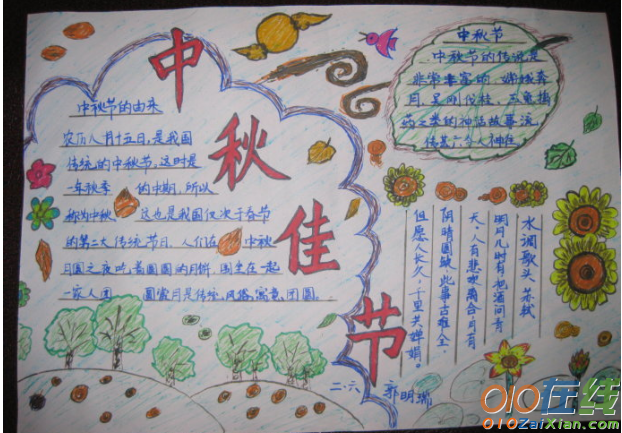 中秋佳节
中秋节的由来
农历八月十五日,是我国
传统的中秋节,这时是
一年秋季 的中期,所以
称为中秋 这也是我国仅次于春节
的第二大传统节日,人们在 中秋
月圆之夜吃着圆圆的月饼,围坐在一起
一家人团 圆赏月是传统,风格,寓意,团圆。
中秋节
中秋节的传说是
非常丰富的,嫦娥奔
月,吴刚伐桂,玉兔捣
药之类的神话故事流
传甚广令人神往
水调歌头 苏轼
明月几时有把酒问青
天。人有悲欢离合月有
阴晴圆缺,此事古难全。
但愿人长久,千里共婵娟。
二.六 郭明瑞
010在线
010ZaiXian.com